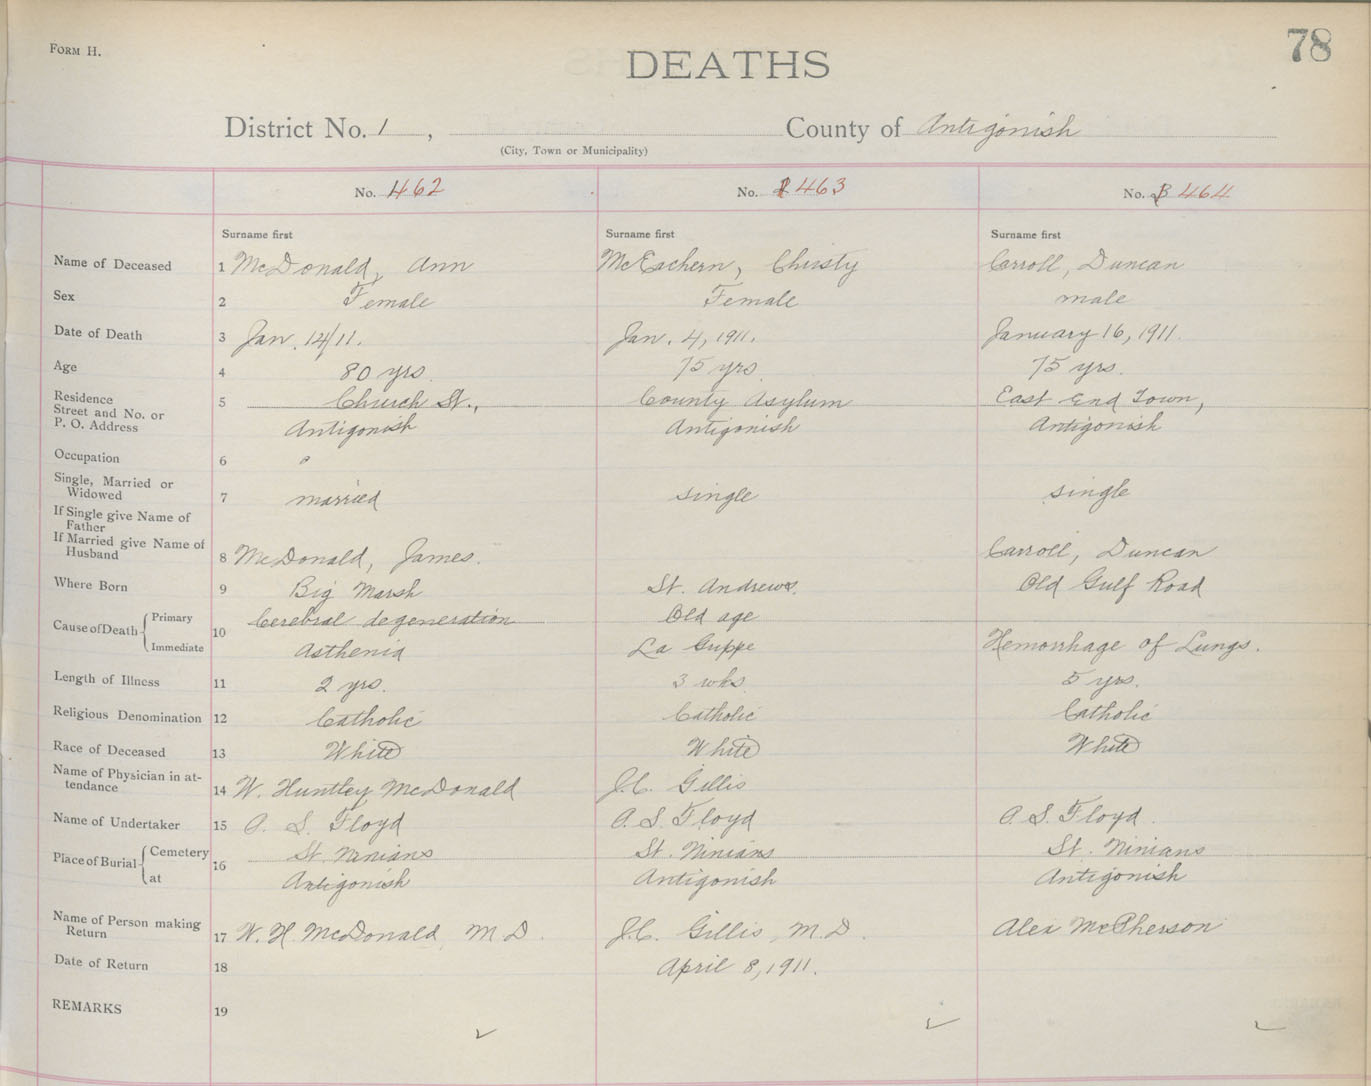 FORM H.
78
DEATHS
District No. 1, County of Antigonish
(City, Town or Municipality)
No. 462 No. 463 No. 464
Surname first Surname first Surname first
Name of Deceased 1 McDonald, Ann McEachern, Christy Carroll, Duncan
Sex 2 Female Female male
Date of Death 3 Jan. 14/11. Jan. 4, 1911. January 16, 1911.
Age 4 80 yrs. 75 yrs. 75 yrs.
Residence 5 Church St., County Asylum East End Town,
Street and No. or
P. O. Address Antigonish Antigonish Antigonish
Occupation 6
Single, Married or
Widowed 7 married single single
If Single give Name of
Father
If Married give Name of
Husband 8 McDonald, James. Carroll, Duncan
Where Born 9 Big Marsh St. Andrews. Old Gulf Road
Cause of Death Primary 10 Cerebral degeneration Old age
Immediate Asthenia La Grippe Hemorrhage of Lungs.
Length of Illness 11 2 yrs. 3 wks. 5 yrs.
Religious Denomination 12 Catholic Catholic Catholic
Race of Deceased 13 White White White
Name of Physician in at-
tendance 14 W. Huntley McDonald J.C. Gillis
Name of Undertaker 15 A. S. Floyd A. S. Floyd A. S. Floyd.
Place of Burial Cemetery 16 St. Ninians St. Ninians St. Ninians
at Antigonish Antigonish Antigonish
Name of Person making
Return 17 W. H McDonald, M.D. J.C. Gillis, M.D. Alex McPherson
Date of Return 18 April 8, 1911.
REMARKS 19